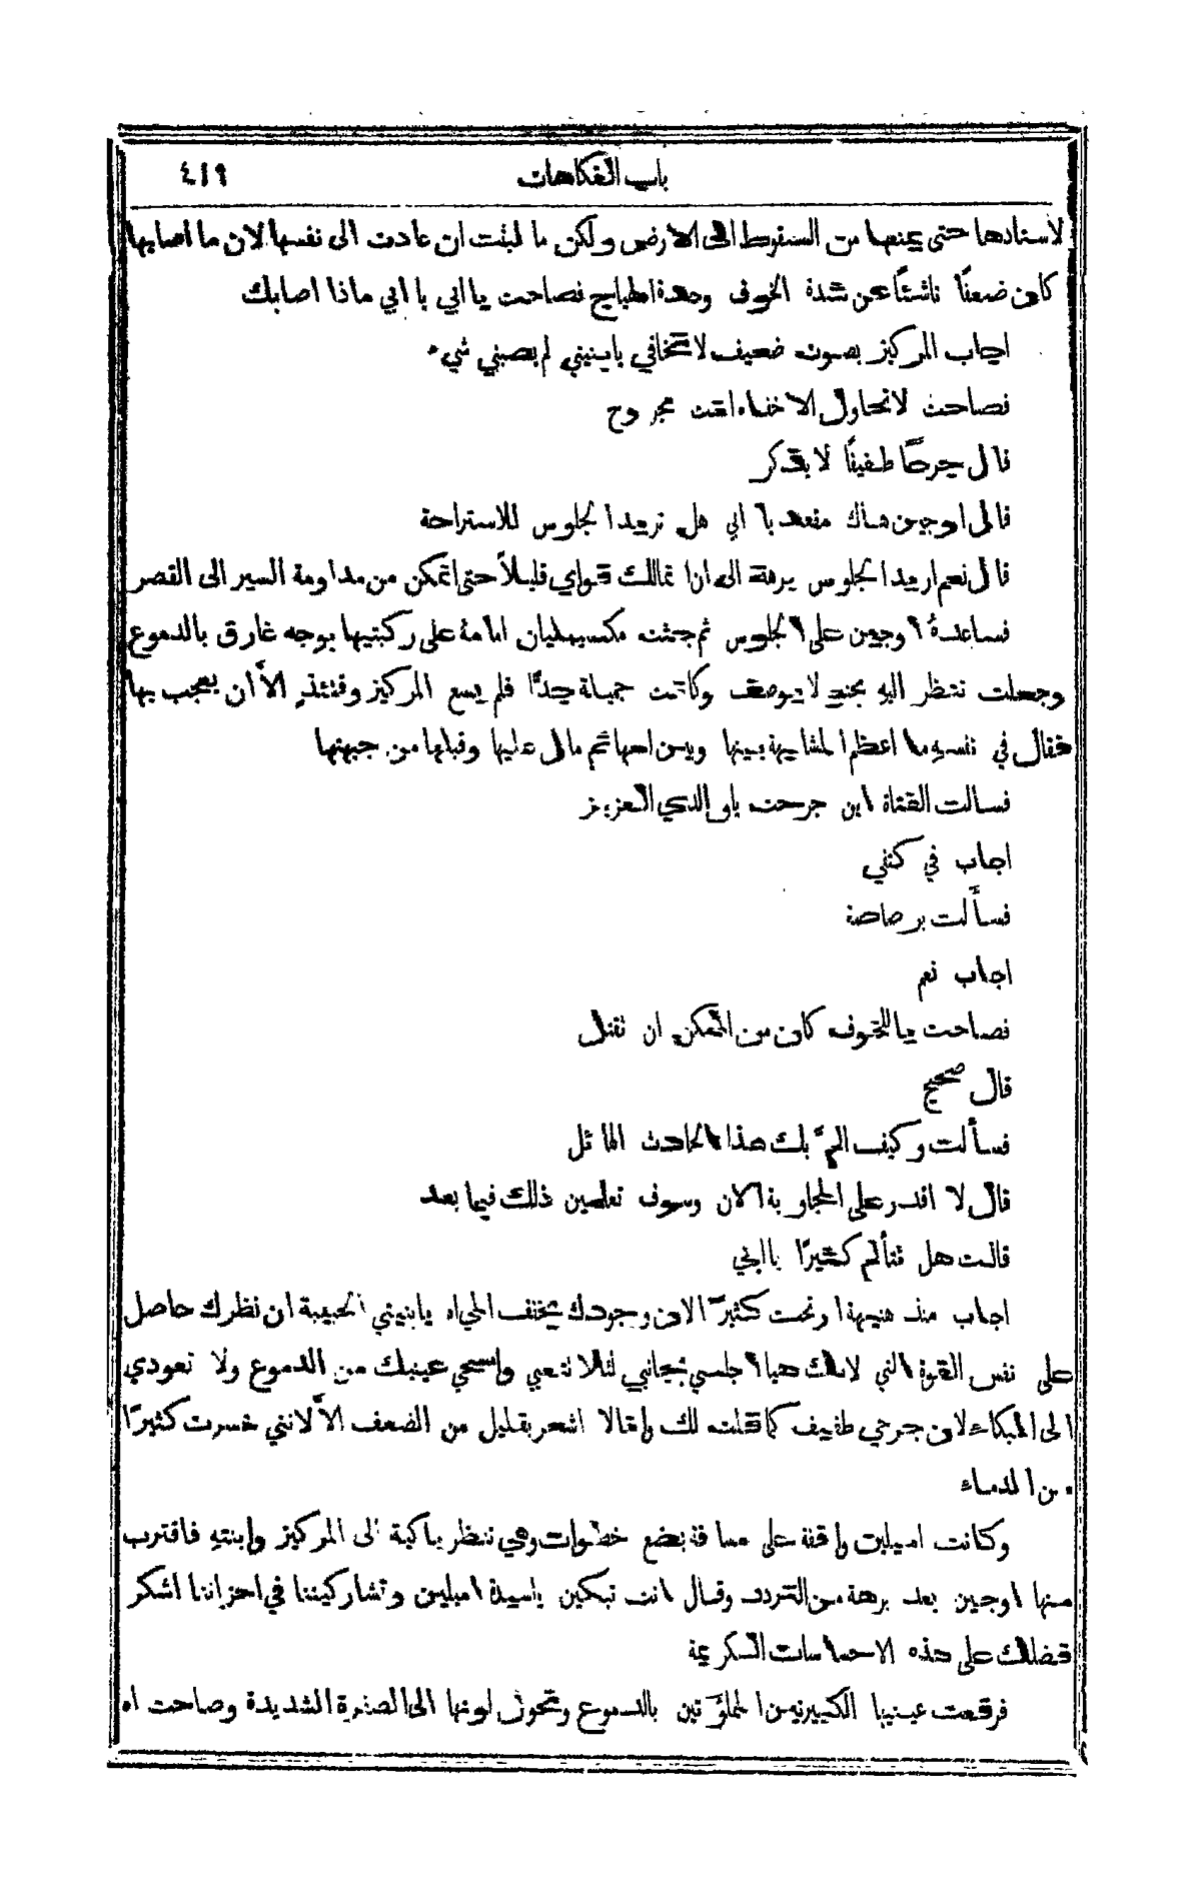 باب الفكاهات ٤١٩
لأسنادها حتى يمنعها من السقوط الى الارض ولكن ما لبثت ان عادت الى نفسها لان ما اصابها
كان ضعفًا ناشئًا عن شدة الخوف وحدة اطباع فصاحت يا ابي يا ابي ماذا اصابك
اجاب المركيز بصوت ضعيف لا تخافي يابنيتي لم يصبني شيء
فصاحت لا تحاول الاخفاء انت مجروح
قال جرحًا طفيفًا لا يذكر
قال اوجين هناك مقعد يا ابي هل تريد الجلوس للاستراحة
قال نعم اريد الجلوس برهة الى ان اتمالك قواي قليلاً حتى اتمكن من مداومة السير الى القصر
فساعدهُ اوجين على الجلوس ثم جثت مكسيمليان امامهُ على ركبتيها بوجه غارق بالدموع
وجعلت تنظر اليهِ بحنوٍ لا يوصف وكانت جميلة جدًّا فلم يسع المركيز وقتئذٍ الاَّ ان يعجب بها
فقال في نفسهِ ما اعظم المشابهة بينها وبين امها ثم مال عليها وقبلها من جبهتها
فسالت الفتاة اين جرحت ياوالدي العزيز
اجاب في كتفي
فسأَلت برصاصة
اجاب نعم
فصاحت يا للخوف كان من الممكن ان تقتل
قال صحيح
فسأَلت وكيف المَّ بك هذا الحادث الهائل
قال لا اقدر على المجاوبة الان وسوف تعلمين ذلك فيما بعد
قالت هل تتأَلم كثيرًا يا ابي
اجاب منذ هنيهة ارتحت كثيرًا لان وجودك يخفف المياه يابنيتي الحبيبة ان نظرك حاصل
على نفس القوة التي لامك هيا اجلسي بجانبي لئلا تتعبي وامسحي عينيك من الدموع ولا تعودي
الى البكاء لان جرحي طفيف كما قلت لك وانما لا اشعر بقليل من الضعف الاَّ لانني خسرت كثيرًا
من الدماء
وكانت اميلين واقفة على مسافة بضع خطوات وهي تنظر باكية الى المركيز وابنتهِ فاقترب
منها اوجين بعد برهة من التردد وقال انت تبكين ياسيدة اميلين وتشاركيننا في احزاننا اشكر
فضلك على هذه الاحساسات الكريمة
فرفعت عينيها الكبيرتين المملوَّتين بالدموع وتحول لونها الى الصفرة الشديدة وصاحت اه